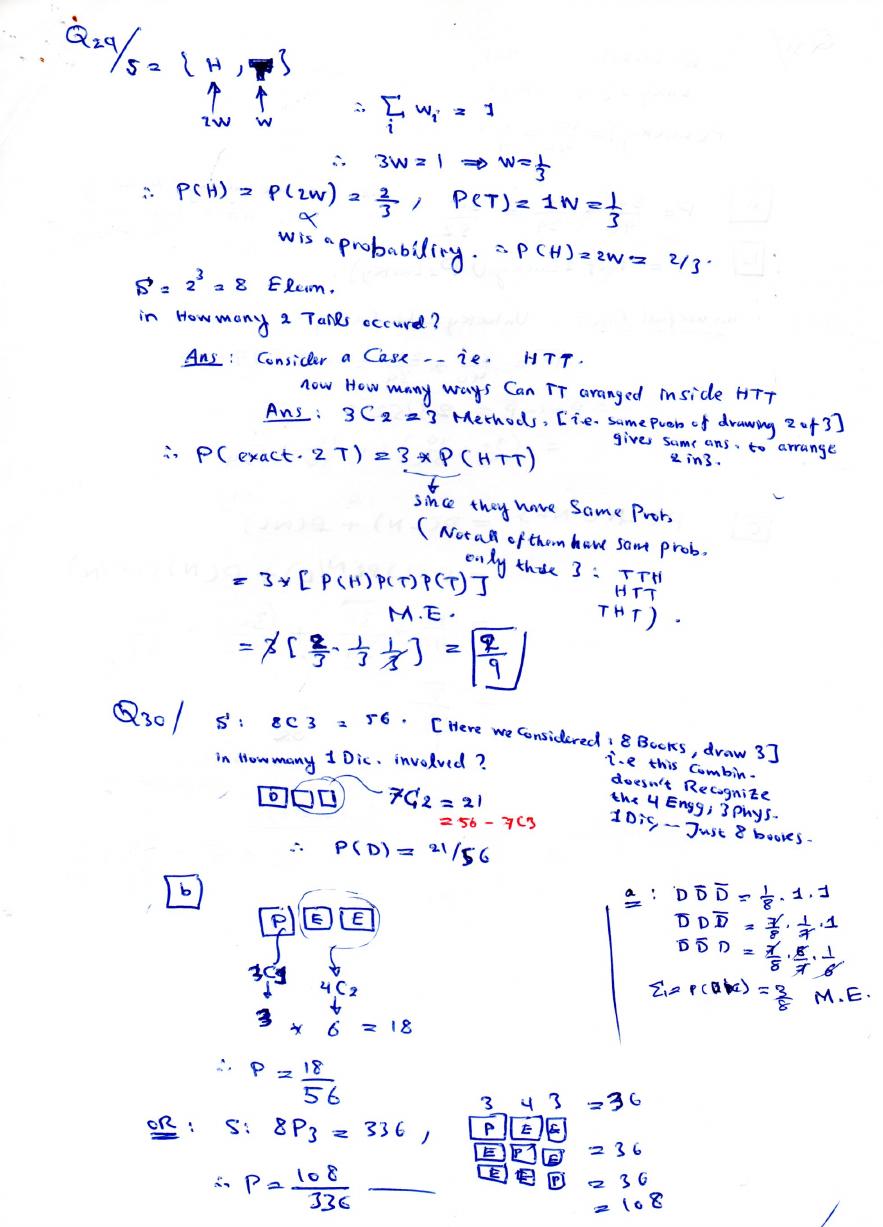 Q29/ S = { H , T }
2W W
∴ Σ Wi = 1
i
∴ 3W = 1 ⇒ W = 1/3
∴ P(H) = P(2W) = 2/3 , P(T) = 1W = 1/3
W is a probability. ∴ P(H) = 2W = 2/3.
S = 2³ = 8 Elem.
in How many 2 Tails occured?
Ans : Consider a Case -- i.e. HTT.
now How many ways Can TT aranged inside HTT
Ans : 3C2 = 3 Methods, [i.e. same prob of drawing 2 of 3]
gives same ans. to arrange
2 in 3.
∴ P( exact. 2 T) = 3 * P(HTT)
since they have Same Prob.
( Not all of them have same prob.
only those 3 : TTH
HTT
THT ) .
= 3 * [ P(H)P(T)P(T) ]
M.E.
= 3 [ 2/3 . 1/3 . 1/3 ] = 2/9
Q30/ S : 8C3 = 56 . [ Here we Considered : 8 Books, draw 3]
i.e this Combin.
doesn't Recognize
the 4 Engg, 3 Phys.
1 Dic, -- Just 8 books.
in How many 1 Dic. involved ?
D 7C2 = 21
= 56 - 7C3
∴ P(D) = 21/56
b
P E E
3C1 4C2
3 * 6 = 18
∴ P = 18/56
a : D D̄ D̄ = 1/8 . 1 . 1
D̄ D D̄ = 7/8 . 1/7 . 1
D̄ D̄ D = 7/8 . 6/7 . 1/6
= 3/8 M.E.
OR : S : 8P3 = 336 ,
3 4 3 = 36
P E E
E P E = 36
E E P = 36
= 108
∴ P = 108/336